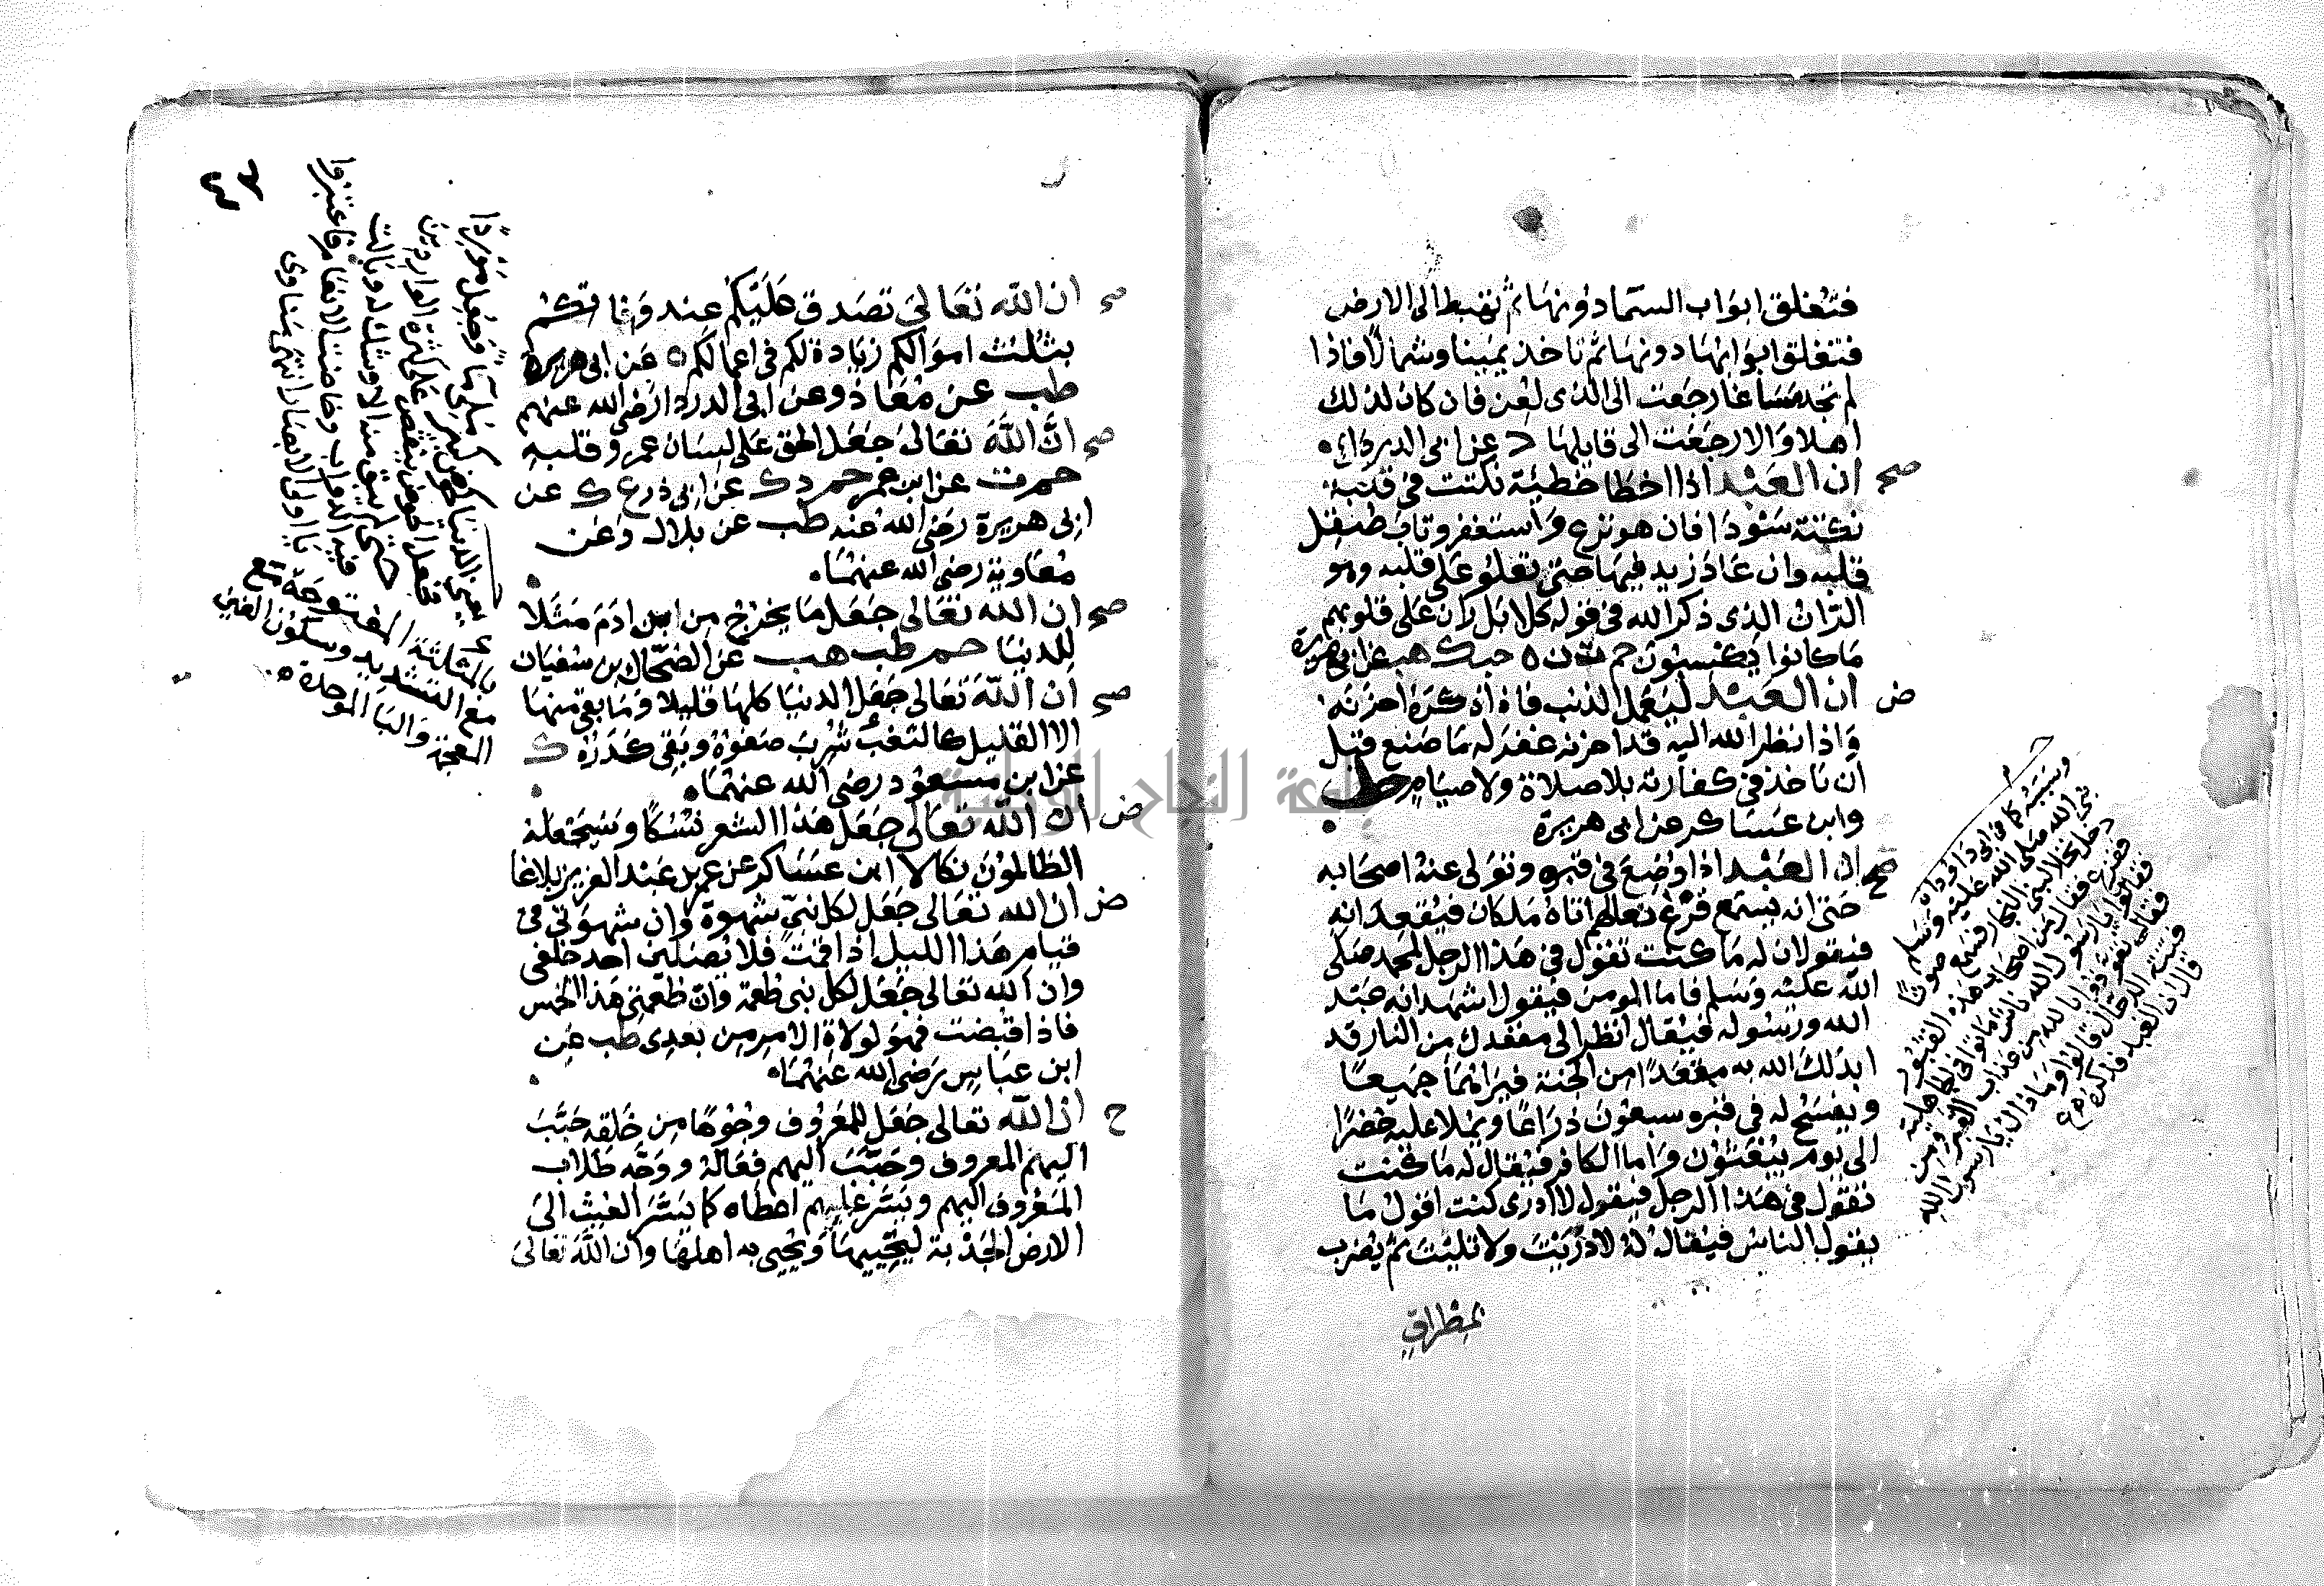 فتغلق ابواب السما دونها ثم تهبط الى الارض
فتغلق ابوابها دونها ثم تاخذ يمينا وشمالا فاذا
لم تجد مساغا رجعت الى الذى لعن فان كان لذلك
اهلا والا رجعت الى قايلها د عن ابى الدرداء
صح ان العبد اذا اخطا خطيئة نكتت فى قلبه
نكتة سودا فان هو نزع واستغفر وتاب صقل
قلبه وان عاد زيد فيها حتى تعلو على قلبه وهو
الران الذى ذكر الله فى قوله كلا بل ران على قلوبهم
ما كانوا يكسبون حم ت ن ه حب ك هب عن ابى هريرة
ض ان العبد ليعمل الذنب فاذا ذكره احزنه
واذا نظر الله اليه قد احزنه غفر له ما صنع قبل
ان ياخذ فى كفارته بلا صلاة ولا صيام حل
وابن عساكر عن ابى هريرة
صح ان العبد اذا وضع فى قبره وتولى عنه اصحابه
حتى انه يسمع قرع نعالهم اتاه ملكان فيقعدانه
فيقولان له ما كنت تقول فى هذا الرجل لمحمد صلى
الله عليه وسلم فاما المومن فيقول اشهد انه عبد
الله ورسوله فيقال انظر الى مقعدك من النار قد
ابدلك الله به مقعدا من الجنة فيراهما جميعا
ويفسح له فى قبره سبعون ذراعا ويملا عليه خضرا
الى يوم يبعثون واما الكافر فيقال له ما كنت
تقول فى هذا الرجل فيقول لا ادرى كنت اقول ما
يقول الناس فيقال له لا دريت ولا تليت ثم يضرب
بمطراق
وسببه كما فى ابى داود ان
نبى الله صلى الله عليه وسلم
دخل نخلا لبنى النجار فسمع صوتا
ففزع فقال من اصحاب هذه القبور
فقالوا يا رسول الله ناس ماتوا فى الجاهلية
فقال تعوذوا بالله من عذاب القبر ومن
فتنة الدجال قالوا وما ذاك يا رسول الله
قال ان العبد فذكره
٤٣
صح ان الله تعالى تصدق عليكم عند وفاتكم
بثلث اموالكم زيادة لكم فى اعمالكم ه عن ابى هريرة
طب عن معاذ وعن ابى الدرداء رضى الله عنهم
صح ان الله تعالى جعل الحق على لسان عمر وقلبه
حم ت عن ابن عمر حم د ك عن ابى ذر ع ك عن
ابى هريرة رضى الله عنه طب عن بلال وعن
معاوية رضى الله عنهما
صح ان الله تعالى جعل ما يخرج من ابن ادم مثلا
للدنيا حم طب هب عن الضحاك بن سفيان
صح ان الله تعالى جعل الدنيا كلها قليلا وما بقى منها
الا القليل كالثغب شرب صفوه وبقى كدره ك
عن ابن مسعود رضى الله عنهما
ض ان الله تعالى جعل هذا الشعر نسكا وسيجعله
الظالمون نكالا ابن عساكر عن عمر بن عبد العزيز بلاغا
ض ان الله تعالى جعل لكل نبى شهوة وان شهوتى فى
قيام هذا الليل اذا قمت فلا يصلين احد خلفى
وان الله تعالى جعل لكل نبى طعمة وان طعمتى هذا الخمس
فاذا قبضت فهو لولاة الامر من بعدى طب عن
ابن عباس رضى الله عنهما
ح ان الله تعالى جعل للمعروف وجوها من خلقه حبب
اليهم المعروف وحبب اليهم فعاله ووجه طلاب
المعروف اليهم ويسر عليهم اعطاه كما يسر الغيث الى
الارض الجدبة ليحييها ويحيى به اهلها وان الله تعالى
يعنى الدنيا كحوض كبير ملئ ما وجعل موردا
فجعل الحوض ينقص على كثرة الواردين
حتى لم يبق منه الا وشل كدر بالت
فيه الدواب وخاضت الانعام فاعتبروا
يا اولى الابصار انتهى مناوى
بالمثلثة المفتوحة مع
مع التشديد وسكون الغين
المعجمة والبا الموحدة
جامعة النجاح الوطنية